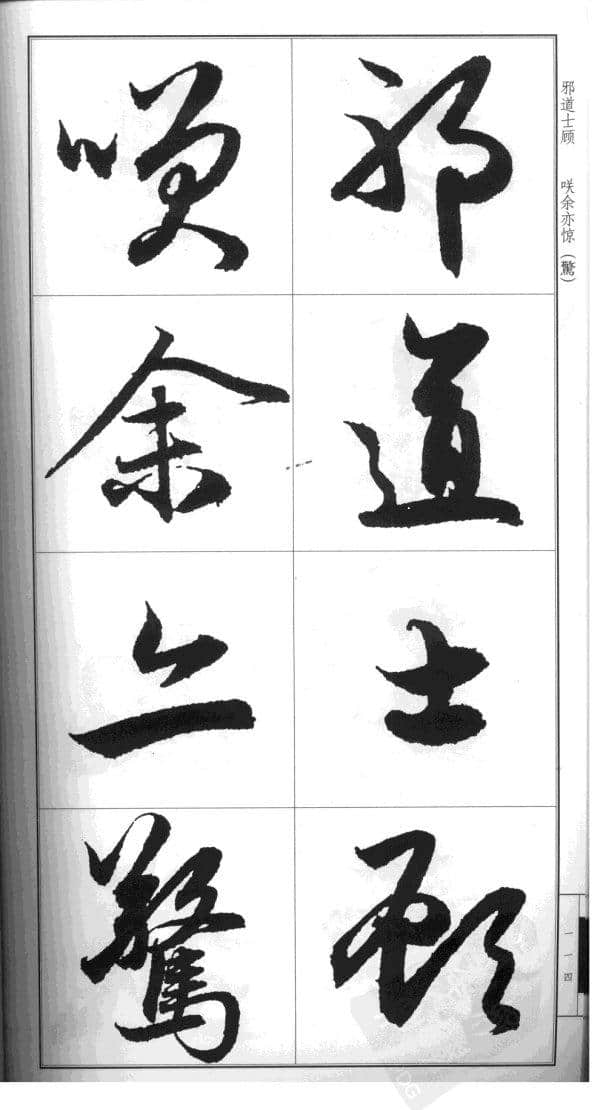 邪道士顾 咲余亦惊(驚)
邪道士顧
咲余亦驚
一一四